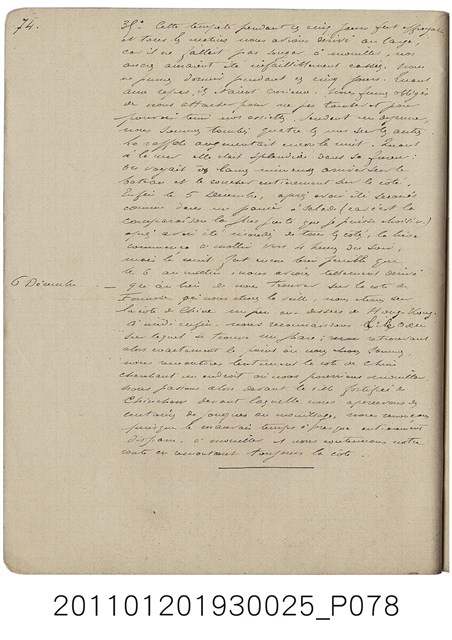 74.
38°. Cette tempête pendant ces cinq jours fut effroyable
et tous les matins nous avions dérivé au large,
car il ne fallait pas songer à mouiller, nos
ancres auraient été infailliblement cassées. Nous
ne pûmes dormir pendant ces cinq jours. Quant
aux repas, ils étaient curieux. Nous fûmes obligés
de nous attacher pour ne pas tomber et pour
pouvoir tenir nos assiettes. Pendant un déjeuner,
nous sommes tombés quatre les uns sur les autres
La rafale augmentait encore la nuit. Quant
à la mer elle était splendide dans sa fureur.
On voyait des lames immenses arriver sur le
bateau et le coucher entièrement sur le côté.
Enfin le 5 Décembre, après avoir été secoués
comme dans un panier à salade (car c'est la
comparaison la plus juste que je puisse choisir)
après avoir été inondés de tous les côtés, la brise
commença à mollir vers 4 heures du soir,
mais la nuit fut encore bien pénible que
6 Décembre
— le 6 au matin, nous avions tellement dérivé
qu'au lieu de nous trouver sur la côte de
Formose où nous étions la veille, nous étions sur
la côte de Chine un peu au dessus de Hong-Kong.
A midi enfin, nous reconnaissons
sur laquelle se trouve un phare;
alors exactement le point où nous étions
nous remontons lentement la côte de Chine
cherchant un endroit où nous pourrions mouiller.
nous passons alors devant la ville fortifiée de
Chinchow devant laquelle nous apercevons des
centaines de jonques au mouillage, nous renonçons
puisque le mauvais temps a presque entièrement
disparu, à mouiller et nous continuons notre
route en remontant toujours la côte.
201101201930025_P078